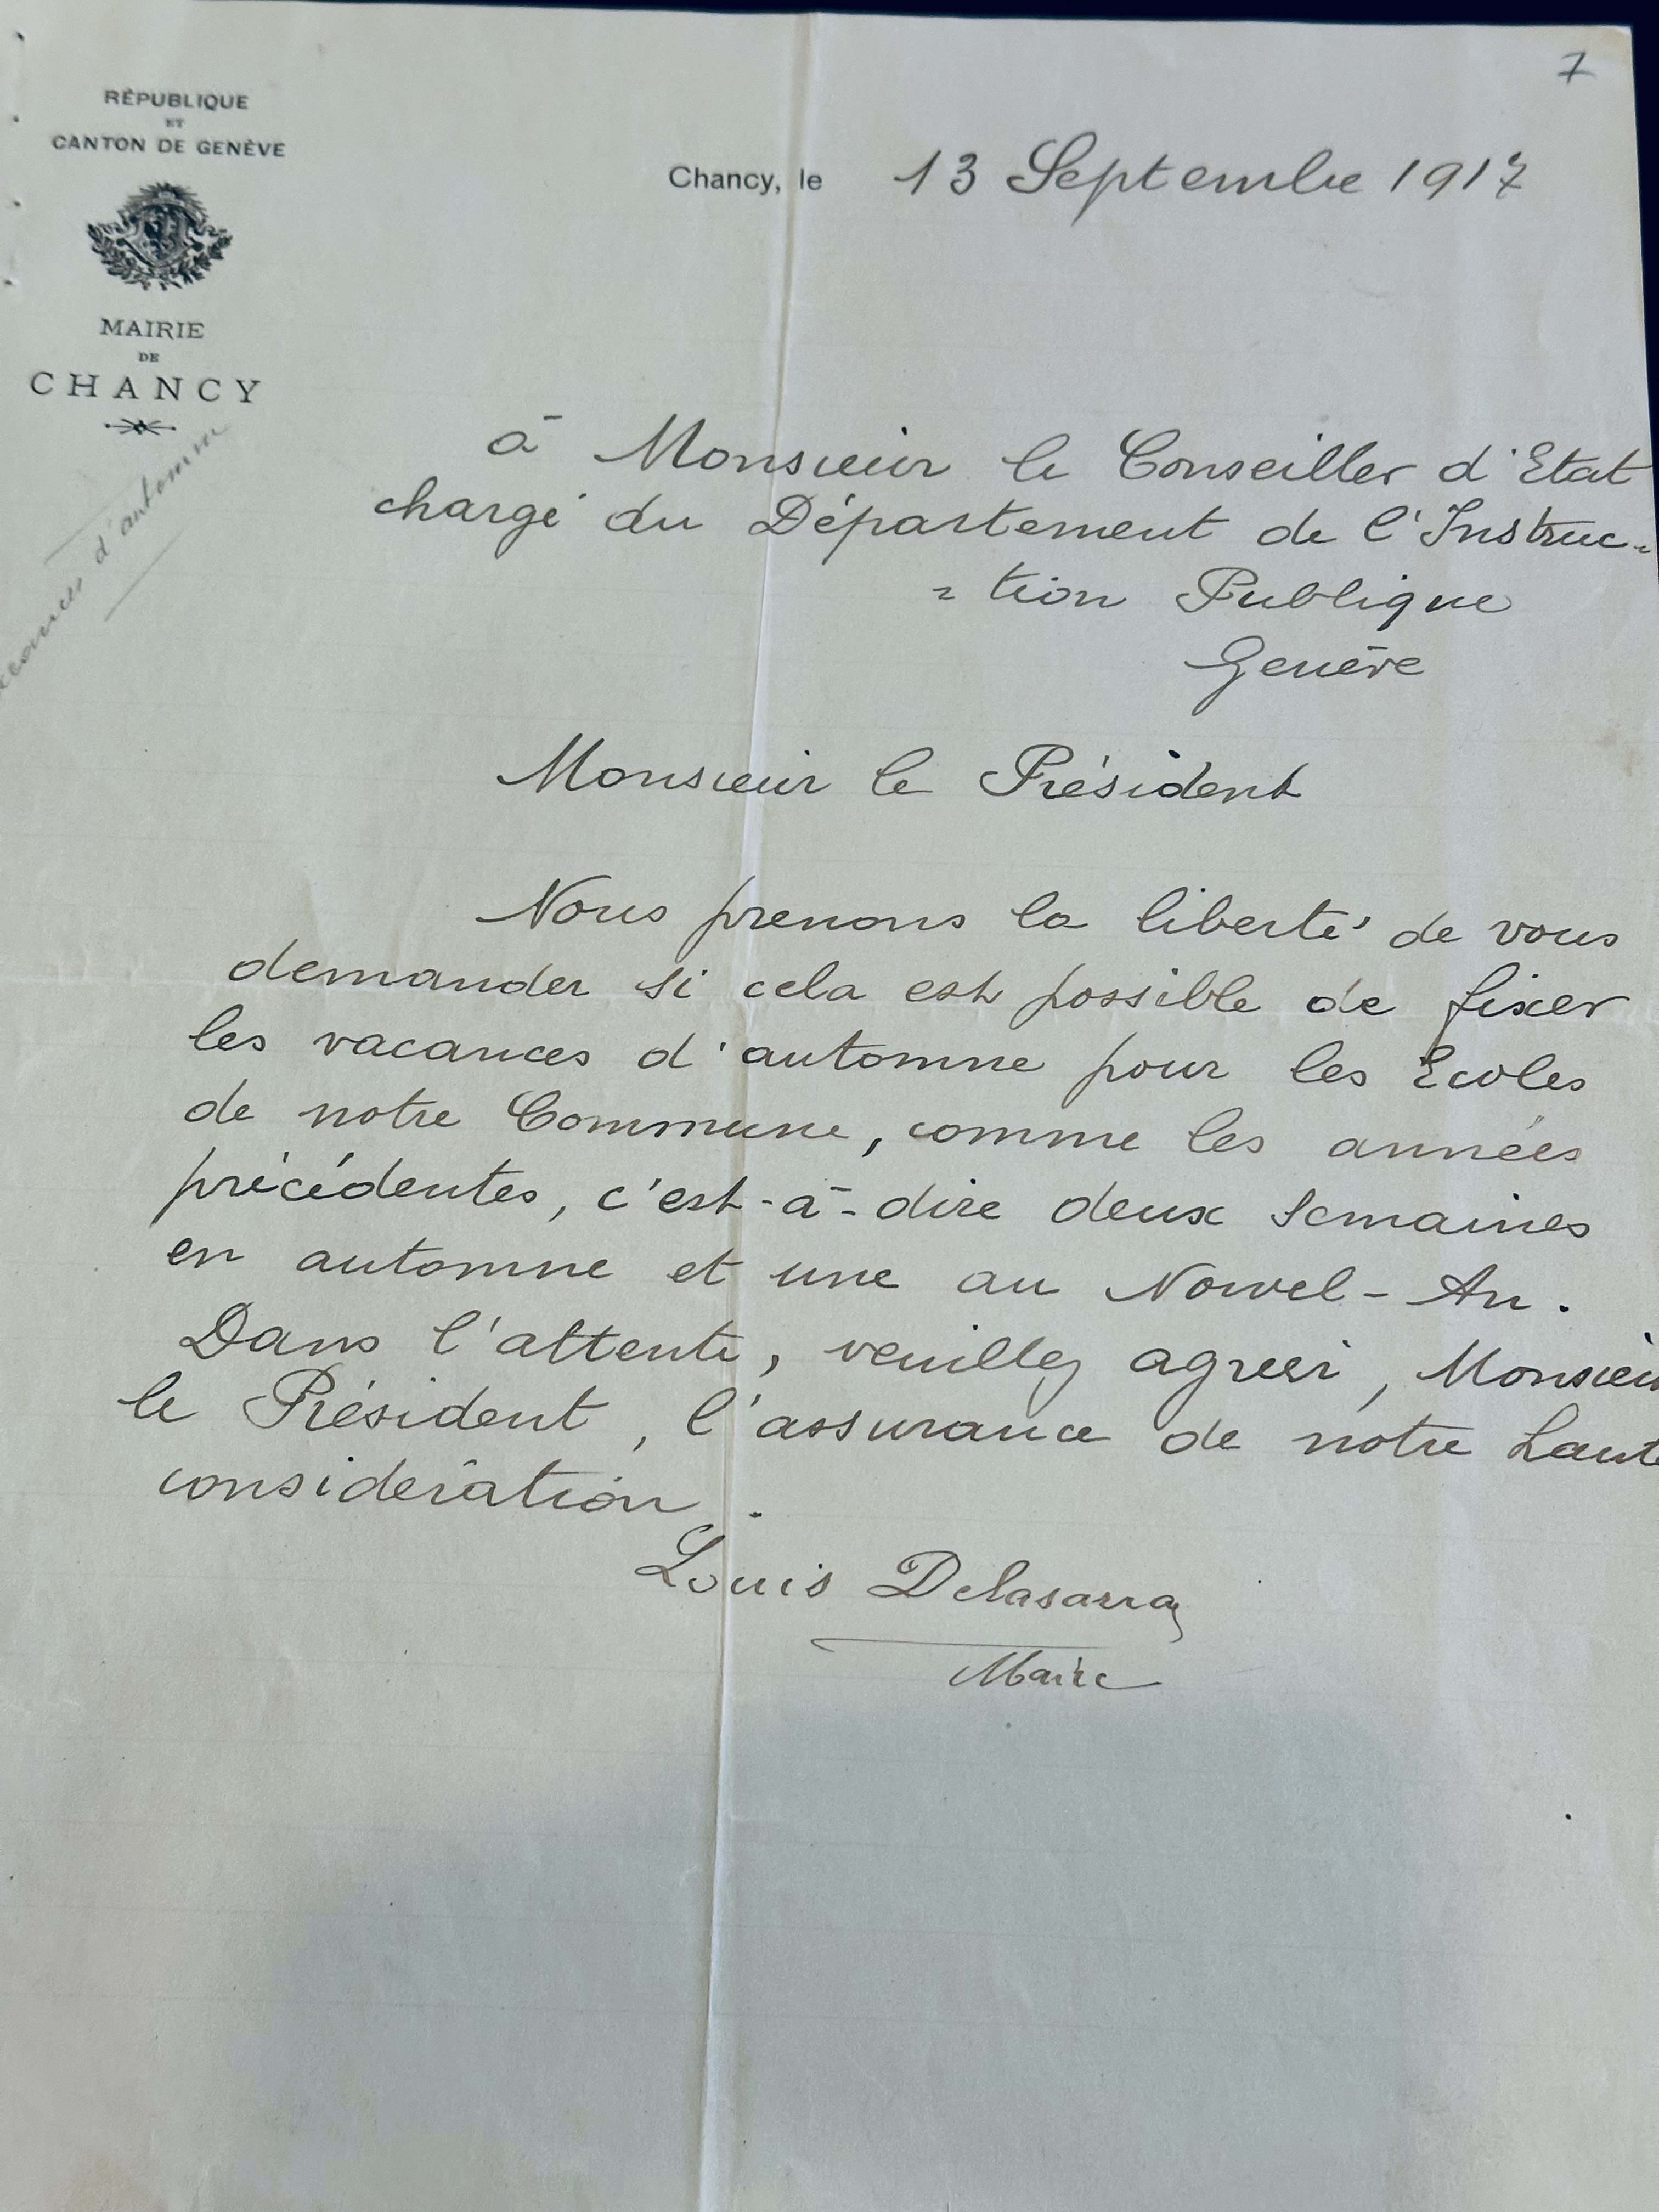 7
RÉPUBLIQUE
ET
CANTON DE GENÈVE
MAIRIE
DE
CHANCY
Chancy, le 13 Septembre 1917
d'automne
à Monsieur le Conseiller d'Etat
chargé du Département de l'Instruc-
-tion Publique
Genève
Monsieur le Président
Nous prenons la liberté de vous
demander si cela est possible de fixer
les vacances d'automne pour les Ecoles
de notre Commune, comme les années
précédentes, c'est-à-dire deux semaines
en automne et une au Nouvel-An.
Dans l'attente, veuillez agréer, Monsieur
le Président, l'assurance de notre haute
considération.
Louis Delasarraz
Maire